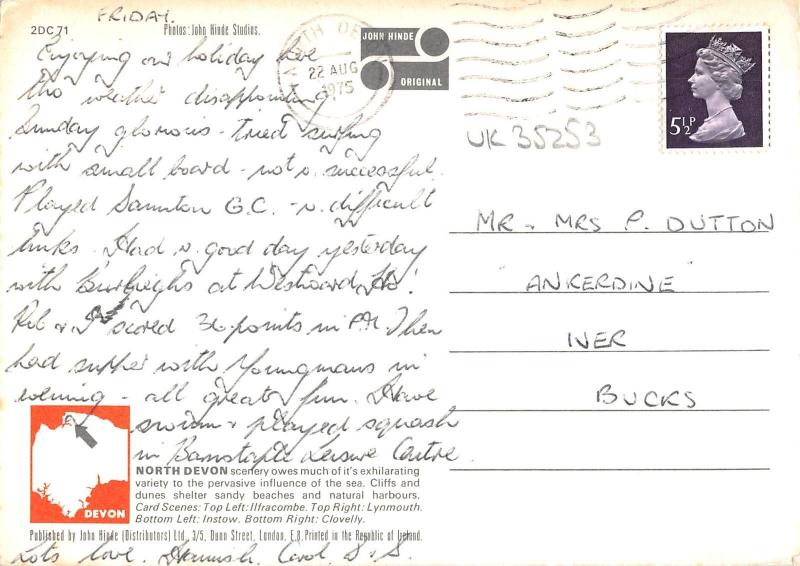 FRIDAY.
2DC71
Photos: John Hinde Studios.
Enjoying our holiday here
tho weather disappointing.
Sunday glorious - tried surfing
with small board - not v. successful.
Played Saunton G.C. - v. difficult
links. Had v. good day yesterday
with Burleighs at Westward Ho!
Rob & I scored 36 points in P.M. Then
had supper with Youngmans in
evening - all great fun. Have
swum & played squash
in Barnstaple Leisure Centre.
DEVON
NORTH DEVON scenery owes much of it's exhilarating
variety to the pervasive influence of the sea. Cliffs and
dunes shelter sandy beaches and natural harbours.
Card Scenes: Top Left: Ilfracombe. Top Right: Lynmouth.
Bottom Left: Instow. Bottom Right: Clovelly.
Published by John Hinde (Distributors) Ltd., 3/5, Dunn Street, London, E.8. Printed in the Republic of Ireland.
Lots love. Hamish, Carol, S & S.
JOHN HINDE
ORIGINAL
22 AUG
1975
5½P
UK 35253
MR & MRS P. DUTTON
ANKERDINE
IVER
BUCKS